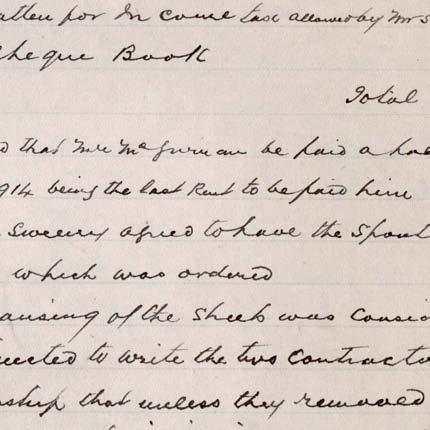 for In come tax allowed by Mrs
heque Book
Total
that Mr McGurran be paid a ha
914 being the last Rent to be paid him
Sweeny agreed to have the Spout
which was ordered
ansing of the Sheds was consid
ected to write the two Contracto
nship that unless they removed